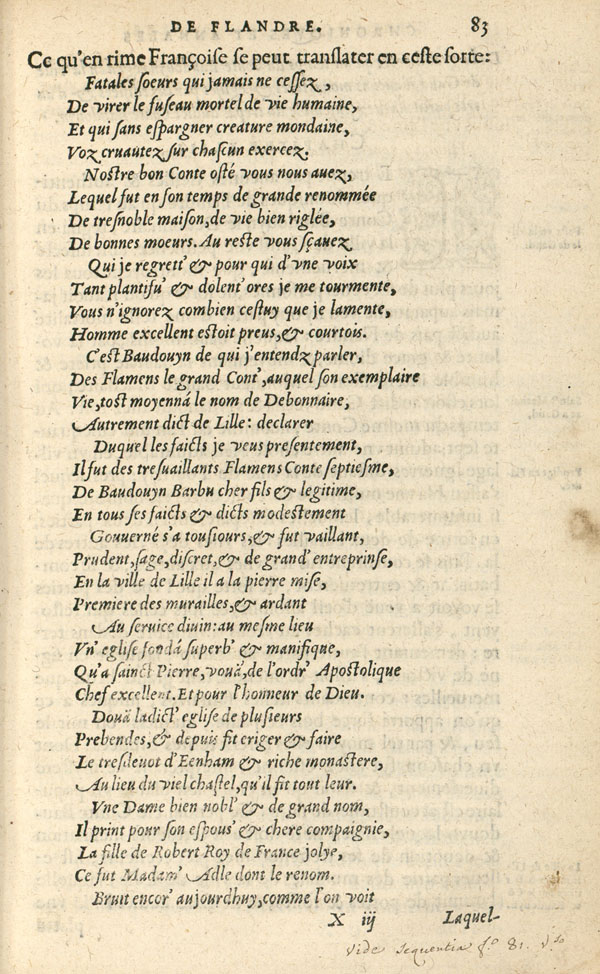 DE FLANDRE. 83
Ce qu'en rime Françoise se peut translater en ceste sorte:
Fatales soeurs qui jamais ne cessez,
De virer le fuseau mortel de vie humaine,
Et qui sans espargner creature mondaine,
Voz cruautez sur chascun exercez.
Nostre bon Conte osté vous nous auez,
Lequel fut en son temps de grande renommée
De tresnoble maison, de vie bien riglée,
De bonnes moeurs. Au reste vous sçauez
Qui je regrett' & pour qui d'vne voix
Tant plantifu' & dolent' ores je me tourmente,
Vous n'ignorez combien cestuy que je lamente,
Homme excellent estoit preus, & courtois.
C'est Baudouyn de qui j'entendz parler,
Des Flamens le grand Cont', auquel son exemplaire
Vie, tost moyennā le nom de Debonnaire,
Autrement dict de Lille: declarer
Duquel les faicts je veus presentement,
Il fut des tresuaillants Flamens Conte septiesme,
De Baudouyn Barbu cher fils & legitime,
En tous ses faicts & dicts modestement
Gouuerné s'a tousiours, & fut vaillant,
Prudent, sage, discret, & de grand' entreprinse,
En la ville de Lille il a la pierre mise,
Premiere des murailles, & ardant
Au seruice diuin: au mesme lieu
Vn' eglise fondā superb' & manifique,
Qu'a sainct Pierre, vouä, de l'ordr' Apostolique
Chef excellent. Et pour l'honneur de Dieu.
Douä ladict' eglise de plusieurs
Prebendes, & depuis fit eriger & faire
Le tresdeuot d'Eenham & riche monastere,
Au lieu du viel chastel, qu'il fit tout leur.
Vne Dame bien nobl' & de grand nom,
Il print pour son espous' & chere compaignie,
La fille de Robert Roy de France jolye,
Ce fut Madam' Adle dont le renom.
Bruit encor' aujourdhuy, comme l'on voit
X iij Laquel-
vide sequentia fo. 81. vso